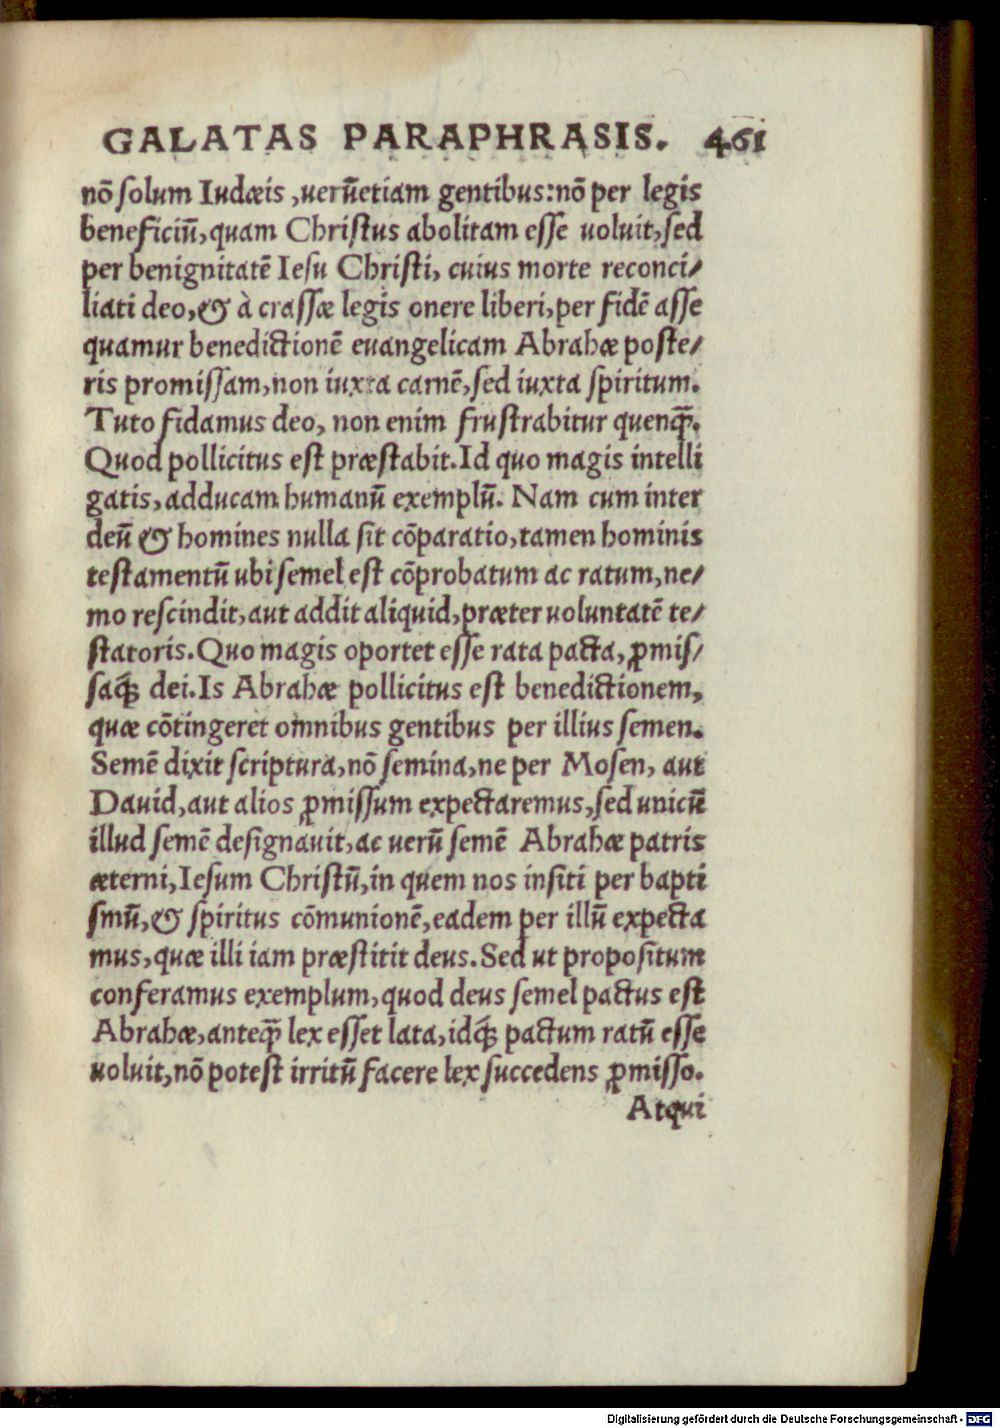 GALATAS PARAPHRASIS. 461
nõ ſolum Iudæis ,uerũetiam gentibus:nõ per legis
beneficiũ,quam Chriſtus abolitam eſſe uoluit,ſed
per benignitatẽ Ieſu Chriſti, cuius morte reconci/
liati deo,& à craſſæ legis onere liberi,per fidẽ aſſe
quamur benedictionẽ euangelicam Abrahæ poſte/
ris promiſſam,non iuxta carnẽ,ſed iuxta ſpiritum.
Tuto fidamus deo, non enim fruſtrabitur quenq̃.
Quod pollicitus eſt præſtabit.Id quo magis intelli
gatis,adducam humanũ exemplũ. Nam cum inter
deũ & homines nulla ſit cõparatio,tamen hominis
teſtamentũ ubi ſemel eſt cõprobatum ac ratum,ne/
mo reſcindit,aut addit aliquid,præter uoluntatẽ te/
ſtatoris.Quo magis oportet eſſe rata pacta, ꝓmiſ/
ſaq́ꝫ dei.Is Abrahæ pollicitus eſt benedictionem,
quæ cõtingeret omnibus gentibus per illius ſemen.
Semẽ dixit ſcriptura,nõ ſemina,ne per Moſen, aut
Dauid,aut alios ꝓmiſſum expectaremus,ſed unicũ
illud ſemẽ deſignauit,ac uerũ ſemẽ Abrahæ patris
æterni,Ieſum Chriſtũ,in quem nos inſiti per bapti
ſmũ,& ſpiritus cõmunionẽ,eadem per illũ expecta
mus,quæ illi iam præſtitit deus.Sed ut propoſitum
conferamus exemplum,quod deus ſemel pactus eſt
Abrahæ,anteq̃ lex eſſet lata,idq́ꝫ pactum ratũ eſſe
uoluit,nõ poteſt irritũ facere lex ſuccedens ꝓmiſſo.
Atqui
Digitalisierung gefördert durch die Deutsche Forschungsgemeinschaft - DFG